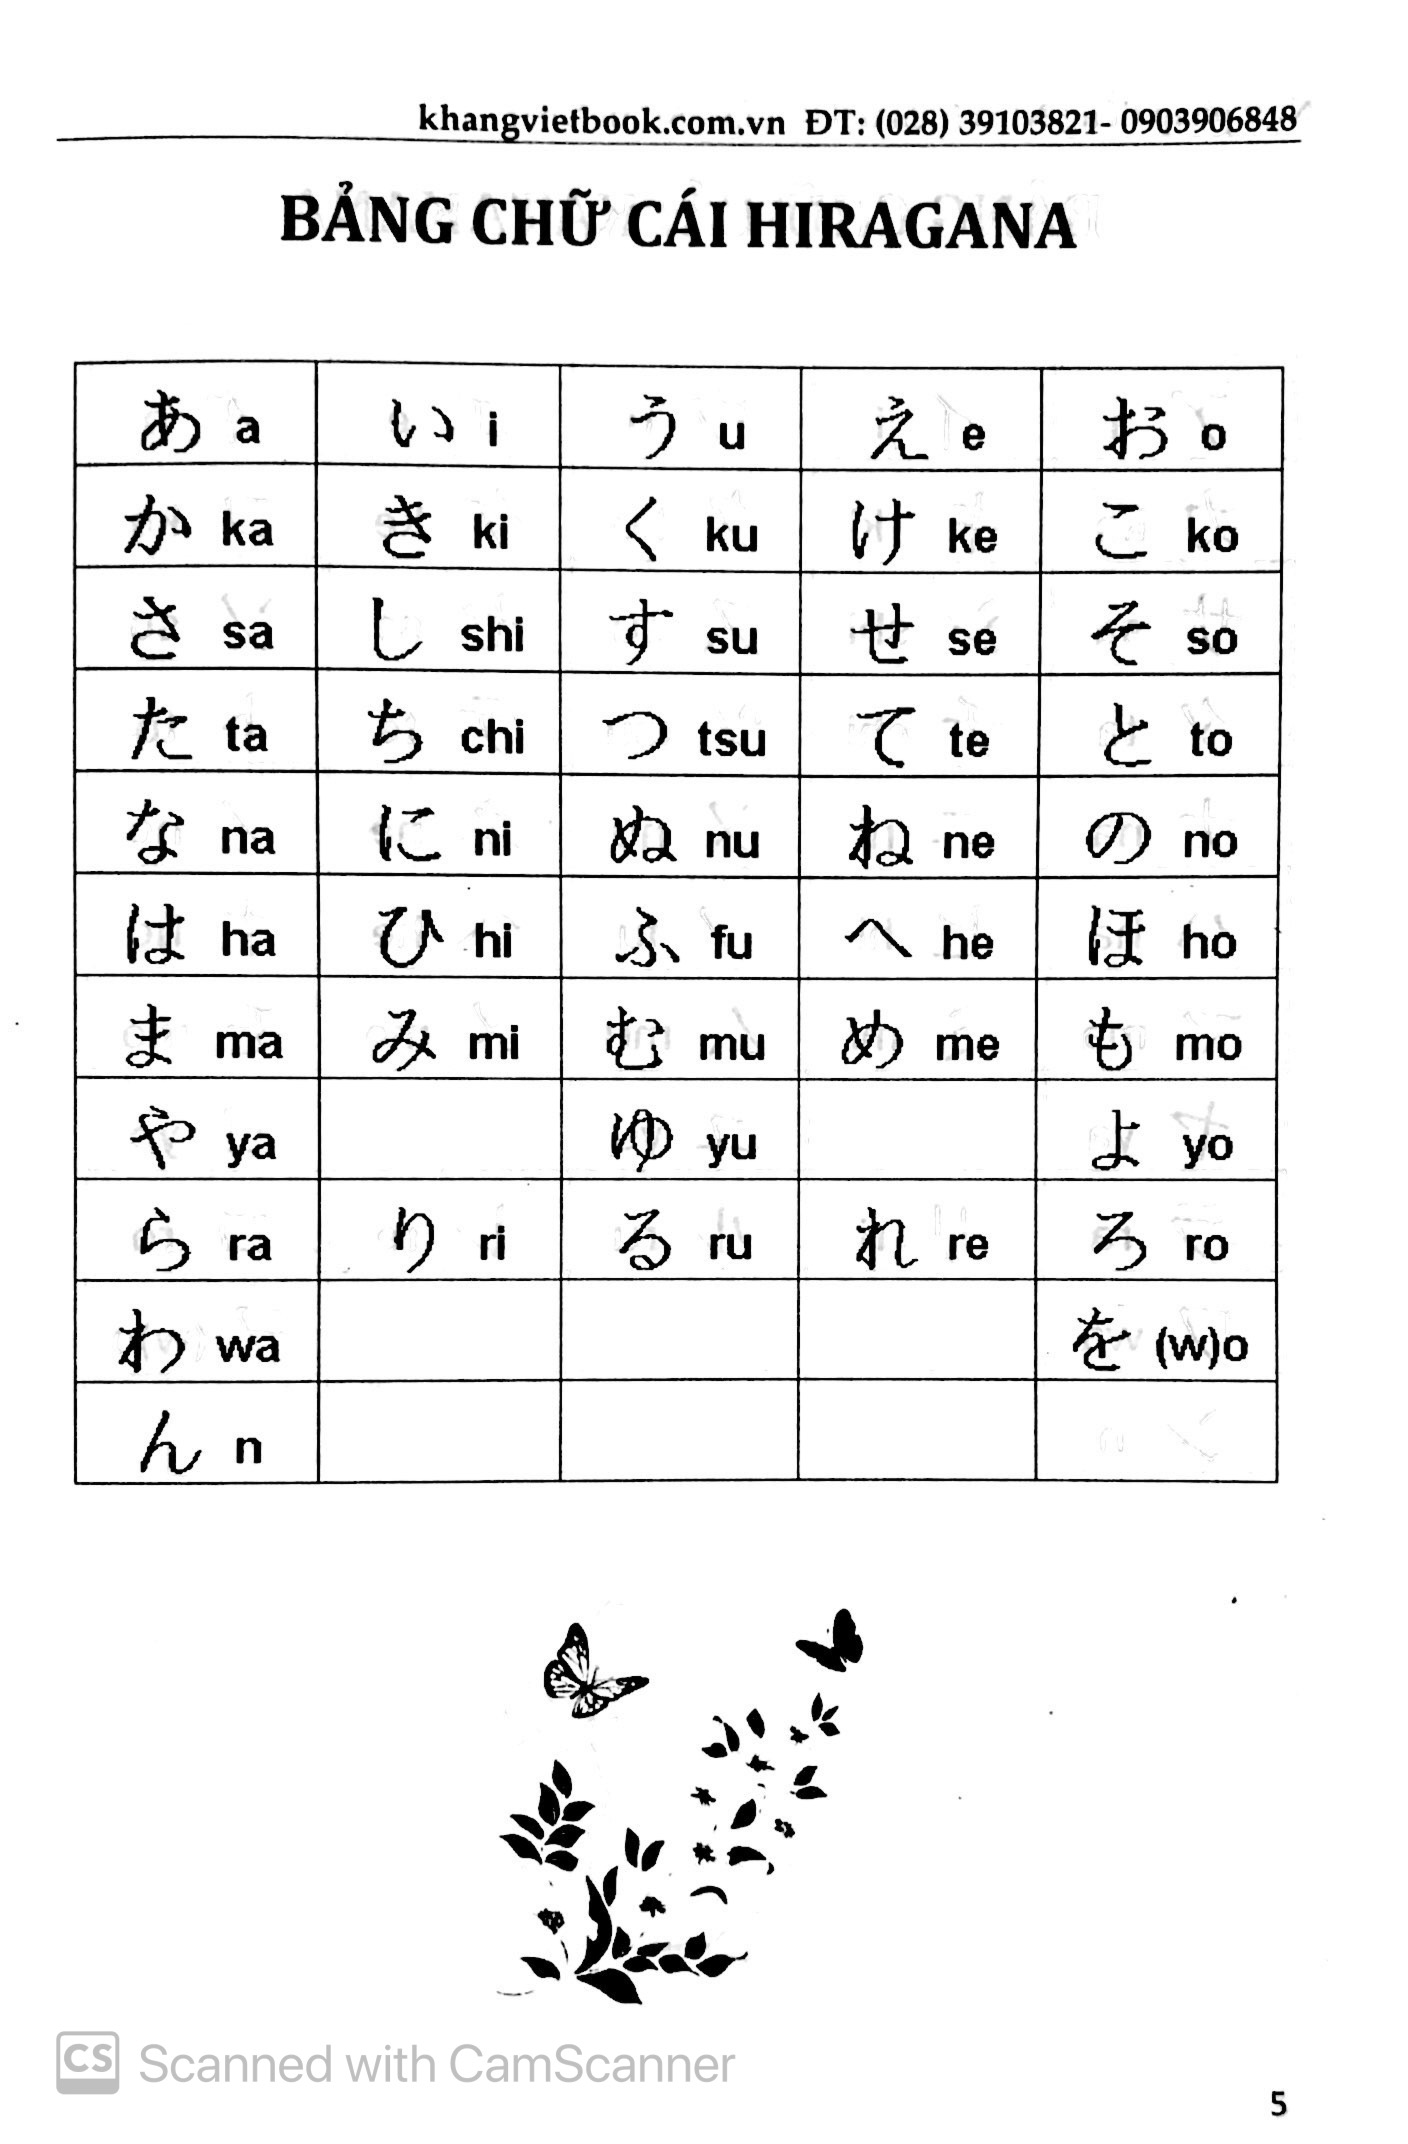 khangvietbook.com.vn ĐT: (028) 39103821- 0903906848
BẢNG CHỮ CÁI HIRAGANA
あ a い i う u え e お o
か ka き ki く ku け ke こ ko
さ sa し shi す su せ se そ so
た ta ち chi つ tsu て te と to
な na に ni ぬ nu ね ne の no
は ha ひ hi ふ fu へ he ほ ho
ま ma み mi む mu め me も mo
や ya ゆ yu よ yo
ら ra り ri る ru れ re ろ ro
わ wa を (w)o
ん n
CS Scanned with CamScanner
5